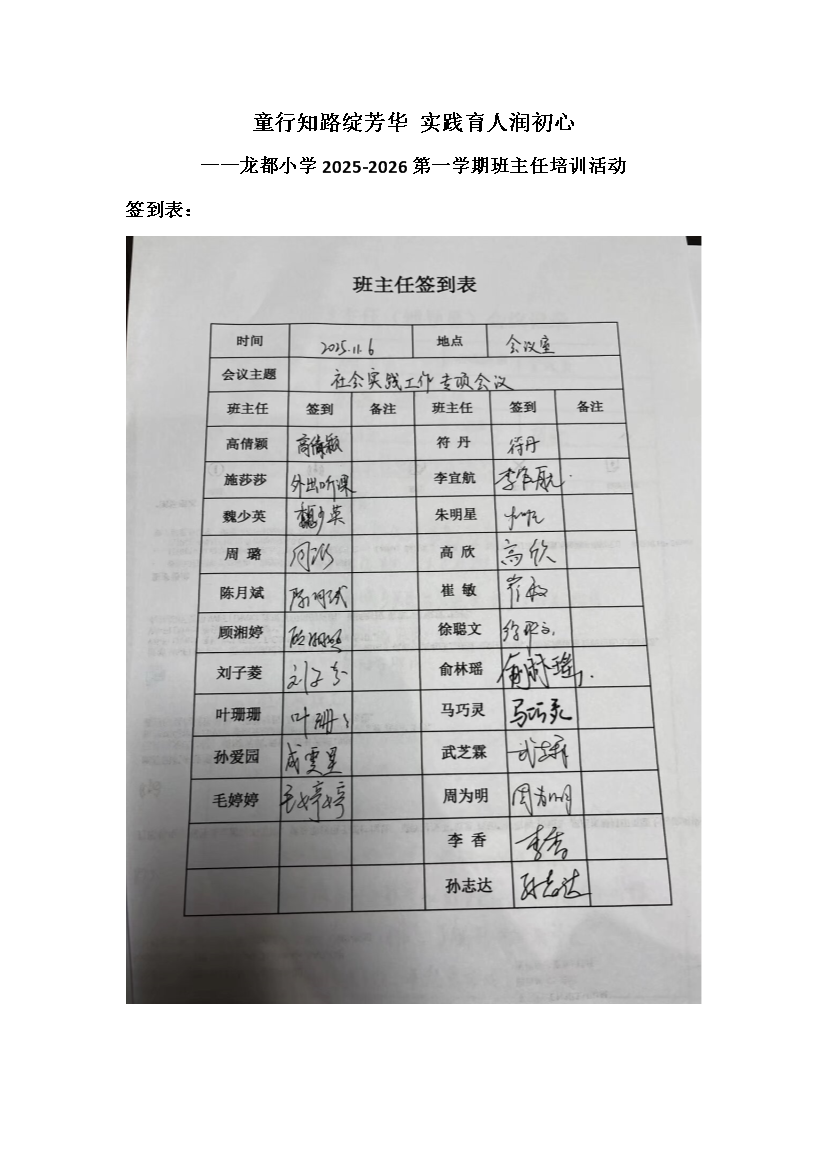 童行知路绽芳华 实践育人润初心
——龙都小学2025-2026第一学期班主任培训活动
签到表：
班主任签到表
时间 2025.11.6 地点 会议室
会议主题 社会实践工作专项会议
班主任 签到 备注 班主任 签到 备注
高倩颖 高倩颖 符 丹 符丹
施莎莎 外出听课 李宜航 李宜航
魏少英 魏少英 朱明星
周 璐 周璐 高 欣 高欣
陈月斌 陈月斌 崔 敏 崔敏
顾湘婷 徐聪文 徐聪文
刘子菱 刘子菱 俞林瑶 俞林瑶
叶珊珊 叶珊珊 马巧灵 马巧灵
孙爱园 成雯星 武芝霖 武芝霖
毛婷婷 毛婷婷 周为明 周为明
李 香 李香
孙志达 孙志达